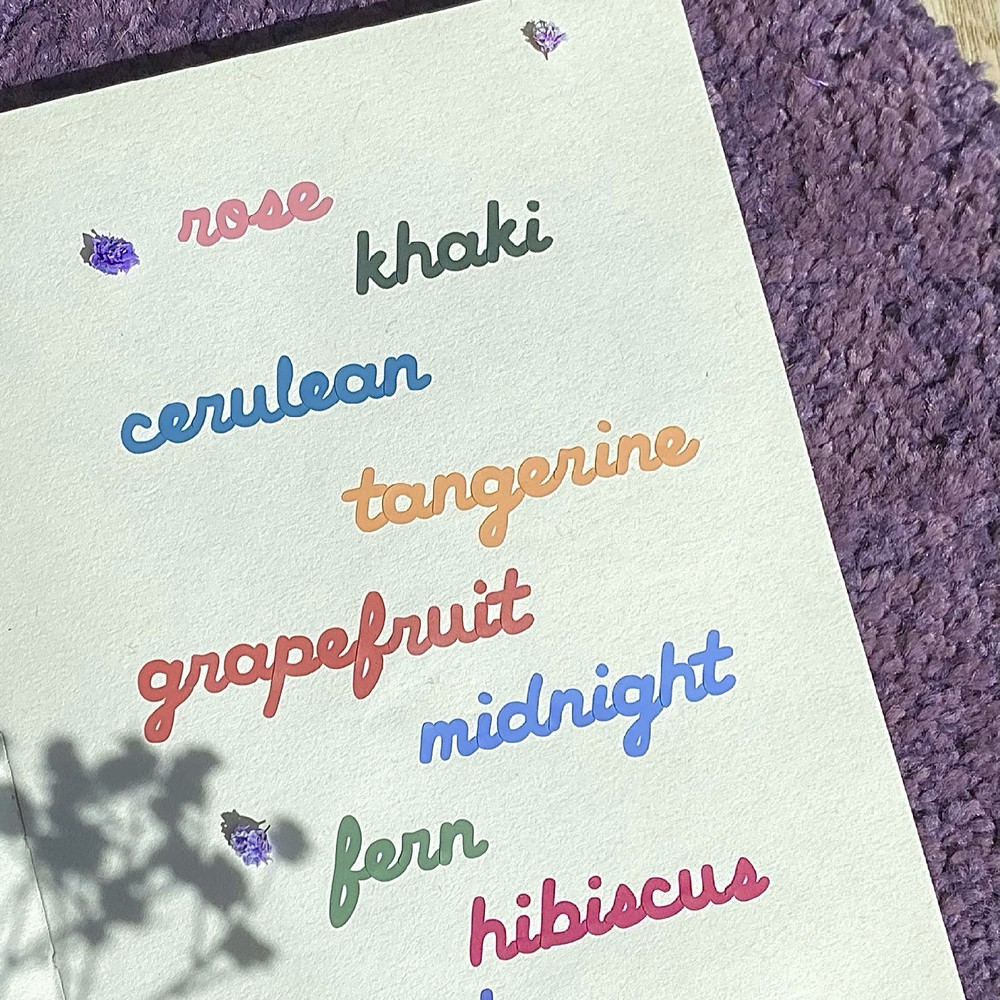 rose
khaki
cerulean
tangerine
grapefruit
midnight
fern
hibiscus